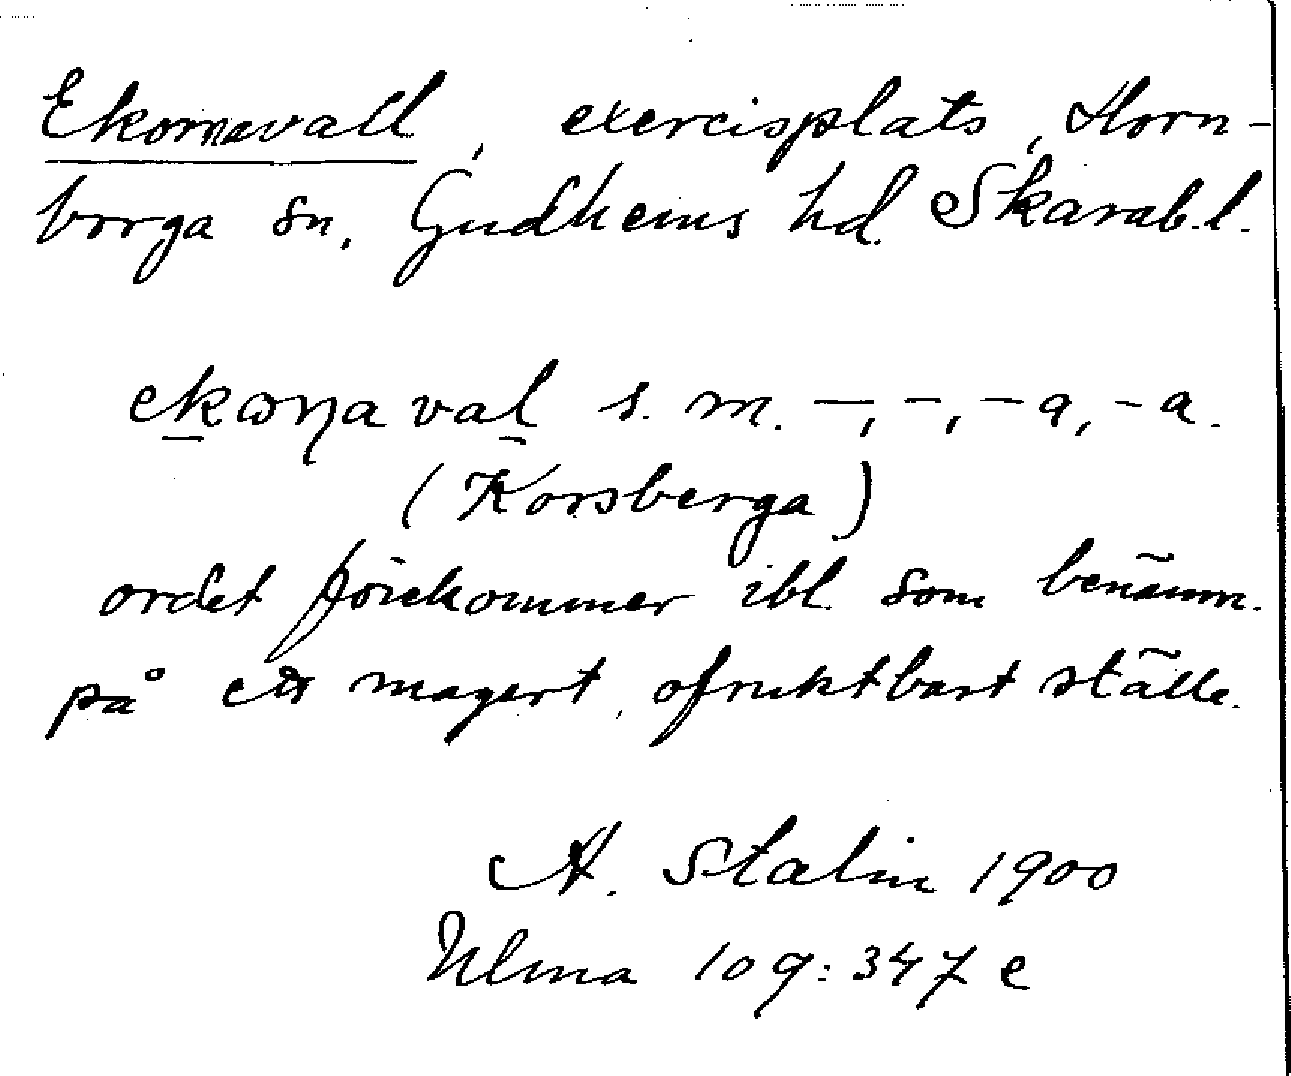 Ekornavall, exercisplats, Horn-
borga sn, Gudhems hd. Skarab.l.
ekɷꞃaval s. m. –, –, –a, –a.
(Korsberga)
ordet förekommer ibl. som benämn.
på ett magert, ofruktbart ställe.
A. Stalin 1900
Ulma 109:347 e